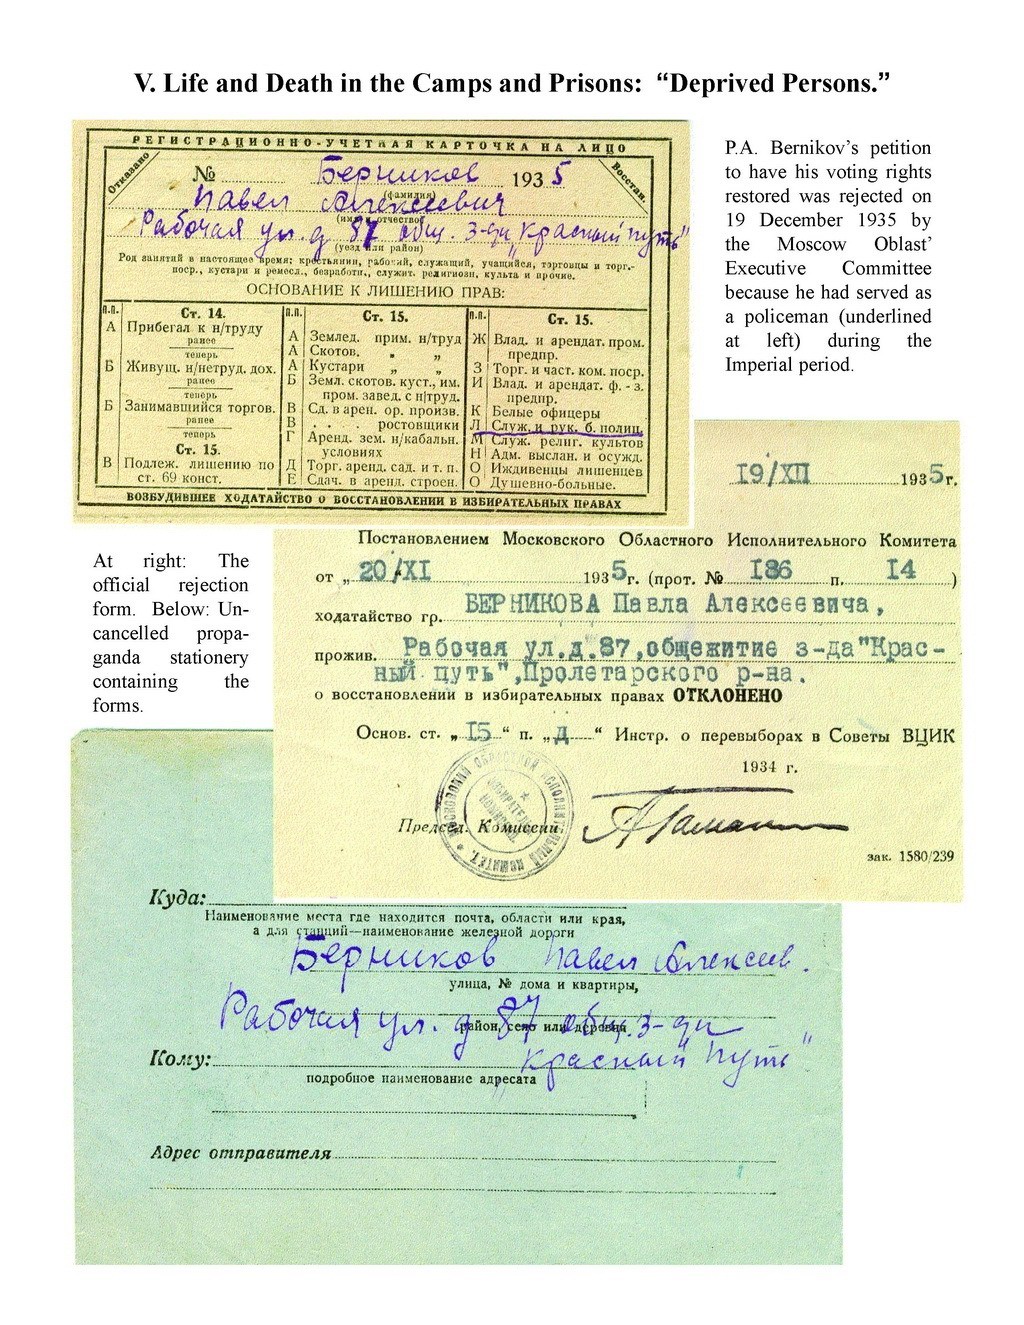 V. Life and Death in the Camps and Prisons: “Deprived Persons.”
РЕГИСТРАЦИОННО-УЧЕТНАЯ КАРТОЧКА НА ЛИЦО
Отказано
Восстан.
№ Берников 1935
(фамилия)
Павел Алексеевич
(имя и отчество)
Рабочая ул. д 87 общ. з-ди „Красный путь“
(уезд или район)
Род занятий в настоящее время: крестьянин, рабочий, служащий, учащийся, торговцы и торг.-
поср., кустари и ремесл., безработн., служит. религиозн. культа и прочие.
ОСНОВАНИЕ К ЛИШЕНИЮ ПРАВ:
П.П. Ст. 14.
А Прибегал к н/труду
ранее
теперь
Б Живущ. н/нетруд. дох.
ранее
теперь
Б Занимавшийся торгов.
ранее
теперь
Ст. 15.
В Подлеж. лишению по
ст. 69 конст.
П.П. Ст. 15.
А Землед. прим. н/труд
А Скотов. „ „
А Кустари „ „
Б Земл. скотов. куст., им.
пром. завед. с н/труд.
В Сд. в арен. ор. произв.
В . . . . ростовщики
Г Аренд. зем. н/кабальн.
условиях
Д Торг. аренд. сад. и т. п.
Е Сдач. в аренд. строен.
П.П. Ст. 15.
Ж Влад. и арендат. пром.
предпр.
З Торг. и част. ком. поср.
И Влад. и арендат. ф. - з.
предпр.
К Белые офицеры
Л Служ. и рук. б. полиц.
М Служ. религ. культов
Н Адм. выслан. и осужд.
О Иждивенцы лишенцев
О Душевно-больные.
ВОЗБУДИВШЕЕ ХОДАТАЙСТВО О ВОССТАНОВЛЕНИИ В ИЗБИРАТЕЛЬНЫХ ПРАВАХ
P.A. Bernikov’s petition
to have his voting rights
restored was rejected on
19 December 1935 by
the Moscow Oblast’
Executive Committee
because he had served as
a policeman (underlined
at left) during the
Imperial period.
At right: The
official rejection
form. Below: Un-
cancelled propa-
ganda stationery
containing the
forms.
19/XII 1935г.
Постановлением Московского Областного Исполнительного Комитета
от „ 20/XI 1935г. (прот. № 186 п. 14 )
ходатайство гр. БЕРНИКОВА Павла Алексеевича,
прожив. Рабочая ул.д.87,общежитие з-да"Крас-
ный путь",Пролетарского р-на.
о восстановлении в избирательных правах ОТКЛОНЕНО
Основ. ст. „ 15 “ п. „ Д “ Инстр. о перевыборах в Советы ВЦИК
1934 г.
Председ. Комиссии
МОСКОВСКИЙ ОБЛАСТНОЙ ИСПОЛНИТЕЛЬНЫЙ КОМИТЕТ
зак. 1580/239
Куда:
Наименование места где находится почта, области или края,
а для станций—наименование железной дороги
Берников Павел Алексеев.
улица, № дома и квартиры,
Рабочая ул. д 87 общ. з-ди
район, село или деревня
„Красный путь“
Кому:
подробное наименование адресата
Адрес отправителя